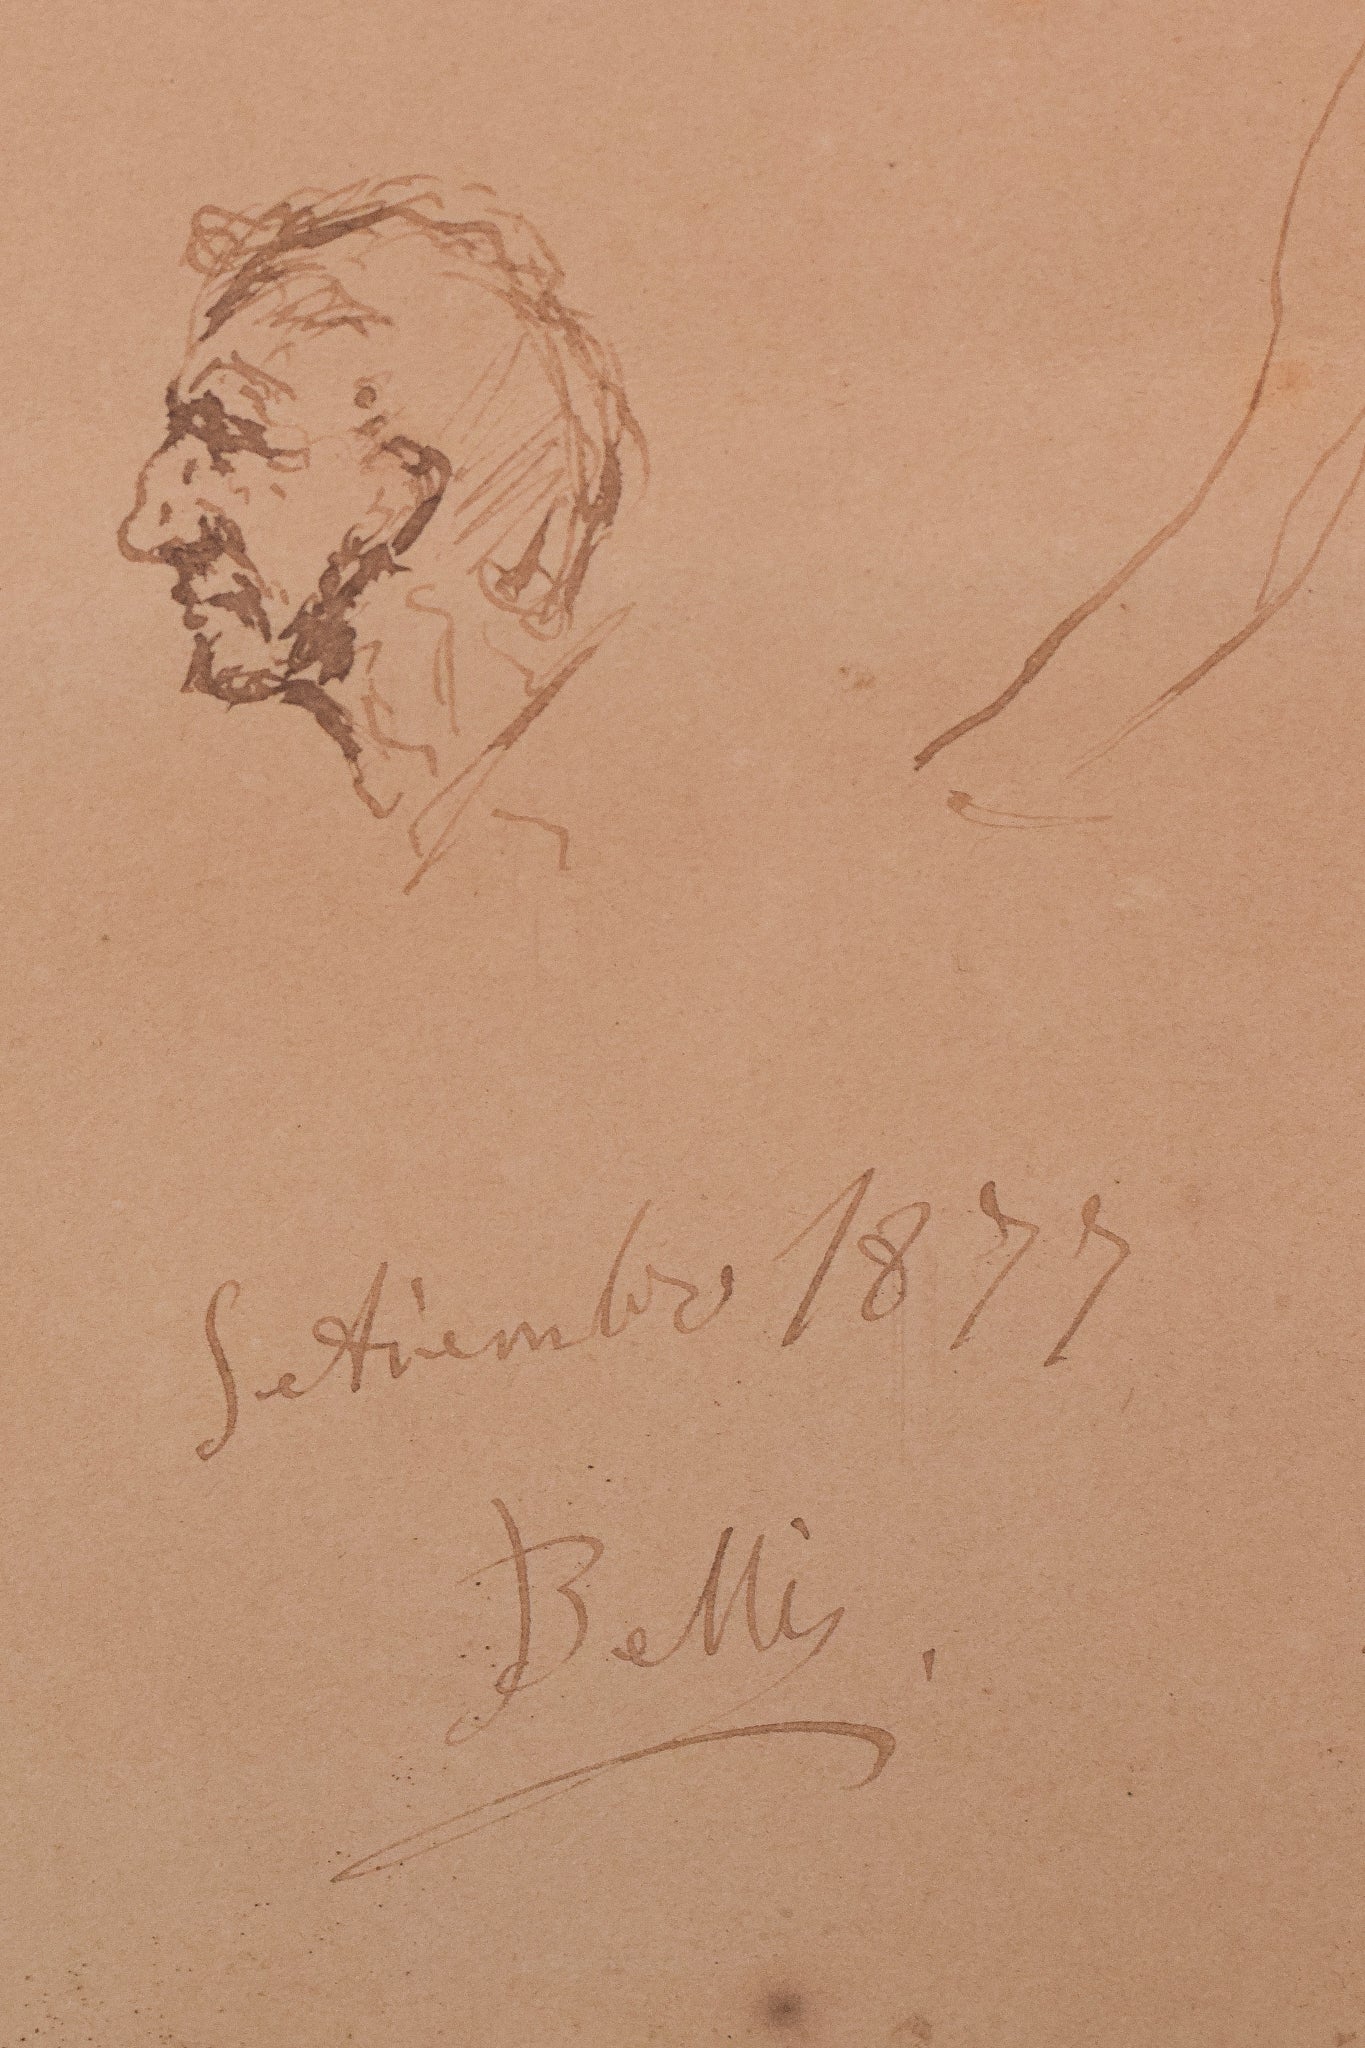 Settiembro 1877
Bellis.